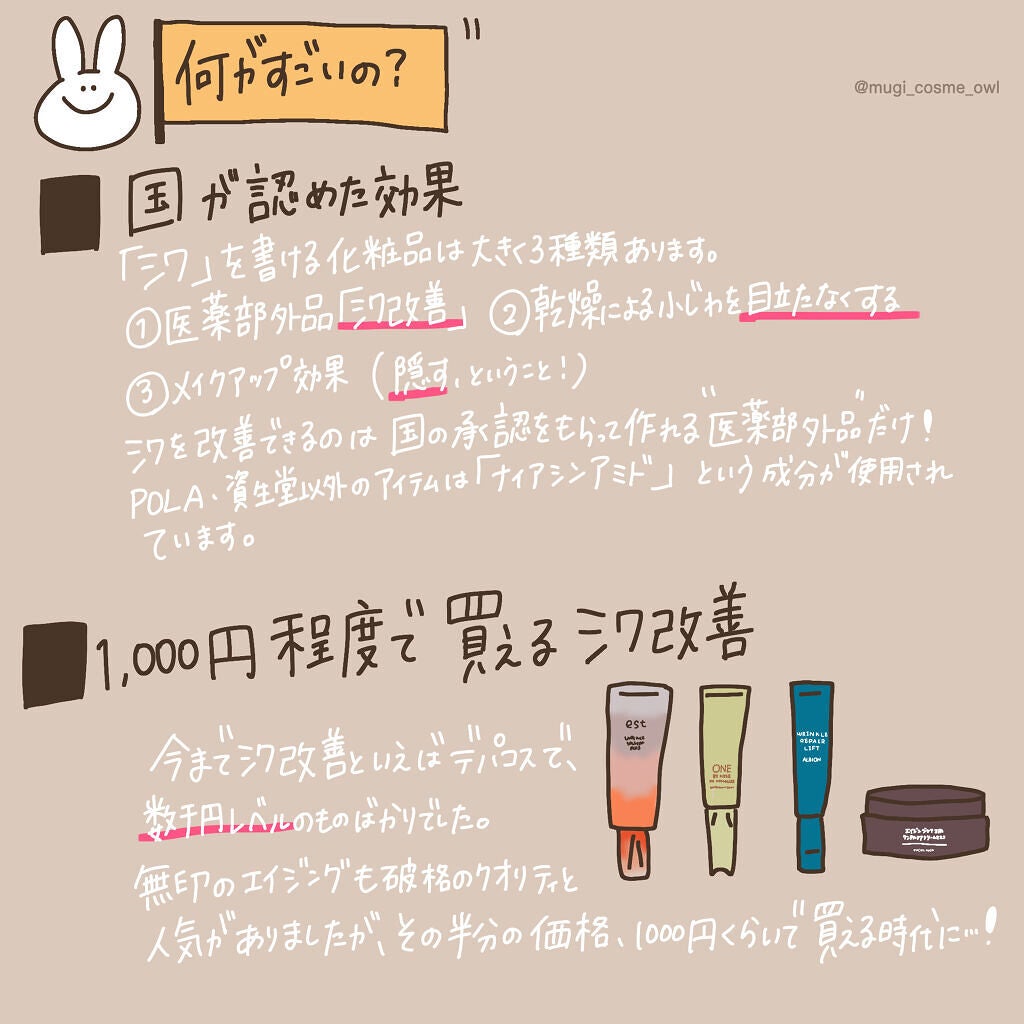 何がすごいの?
@mugi_cosme_owl
国が認めた効果
「シワ」を書ける化粧品は大きく3種類あります。
①医薬部外品「シワ改善」 ②乾燥による小じわを目立たなくする
③メイクアップ効果(隠す、ということ!)
シワを改善できるのは国の承認をもらって作れる"医薬部外品"だけ!
POLA、資生堂以外のアイテムは「ナイアシンアミド」という成分が使用され
ています。
1,000円程度で買えるシワ改善
今までシワ改善といえばデパコスで、
数千円レベルのものばかりでした。
無印のエイジングも破格のクオリティと
人気がありましたが、その半分の価格、1000円くらいで買える時代に…!
est
ONE
WRINKLE
REPAIR
LIFT
ALBION